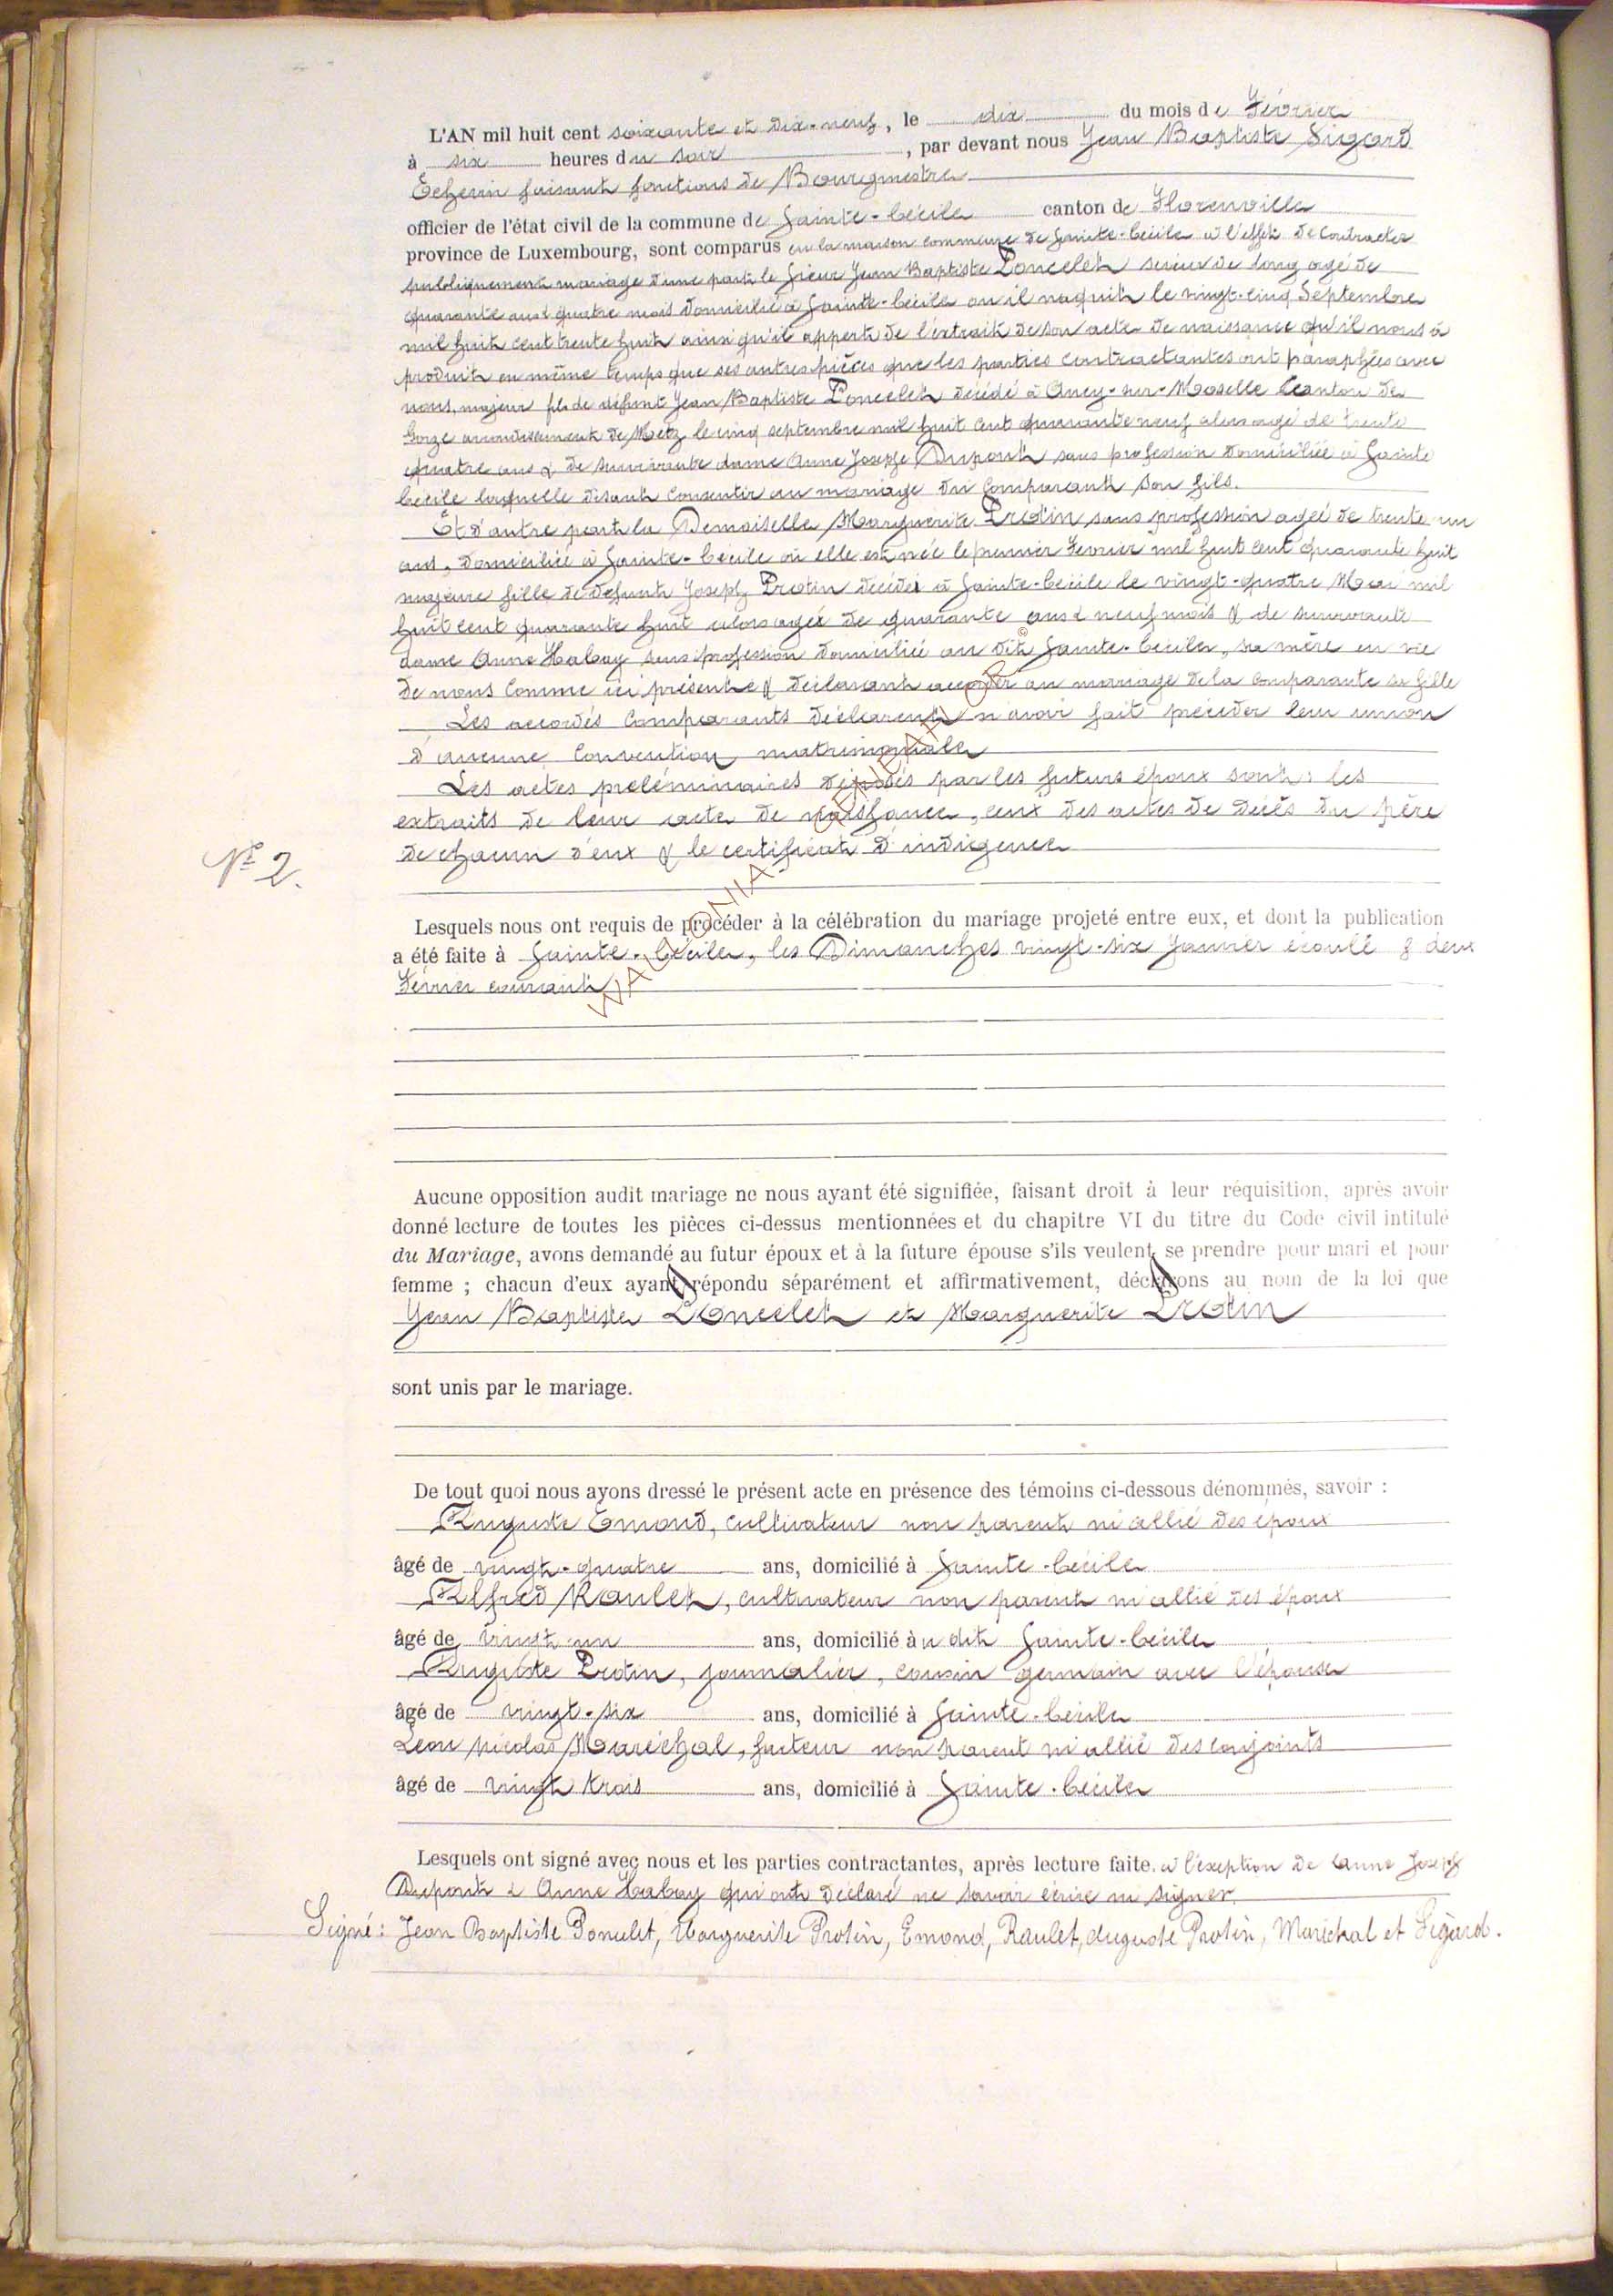 L'AN mil huit cent soixante et dix-neuf, le dix du mois de Février
à six heures du soir, par devant nous Jean Baptiste Sigard
Échevin faisant fonctions de Bourgmestre
officier de l'état civil de la commune de Sainte-Cécile canton de Florenville
province de Luxembourg, sont comparus en la maison commune de Sainte-Cécile à l'effet de contracter
publiquement mariage d'une part le sieur Jean Baptiste Poncelet scieur de long agé de
quarante ans & quatre mois domicilié à Sainte-Cécile où il naquit le vingt-cinq Septembre
mil huit cent trente huit ainsi qu'il appert de l'extrait de son acte de naissance qu'il nous à
produit en même temps que ses autres pièces que les parties contractantes ont paraphées avec
nous, majeur fils de défunt Jean Baptiste Poncelet décédé à Ancy-sur-Moselle Canton de
Gorze arrondissement de Metz le cinq septembre mil huit cent quarante neuf alors agé de trente
quatre ans & de survivante dame Anne Josephe Dupont sans profession domiciliée à Sainte
Cécile laquelle disant consentir au mariage du comparant son fils.
Et d'autre part la Demoiselle Marguerite Protin sans profession agée de trente un
ans, domiciliée à Sainte-Cécile où elle est née le premier Fevrier mil huit cent quarante huit
majeure fille de défunt Joseph Protin décédé à Sainte-Cécile le vingt-quatre Mai mil
huit cent quarante huit alors agée de quarante ans & neuf mois & de survivante
dame Anne Habay sans profession domiciliée au dit Sainte-Cécile, sa mère en vie
de nous comme ici présente & déclarant accorder au mariage de la comparante sa fille
Les accordés comparants déclarent n'avoir fait précéder leur union
d'aucune convention matrimoniale
Les actes préléminaires déposés par les futurs époux sont: les
extraits de leur acte de naissance, ceux des actes de décès du père
de chacun d'eux & le certificat d'indigence
N° 2.
Lesquels nous ont requis de procéder à la célébration du mariage projeté entre eux, et dont la publication
a été faite à Sainte-Cécile, les Dimanches vingt-six Janvier écoulé & deux
Février courant
WALLONIA
Aucune opposition audit mariage ne nous ayant été signifiée, faisant droit à leur réquisition, après avoir
donné lecture de toutes les pièces ci-dessus mentionnées et du chapitre VI du titre du Code civil intitulé
du Mariage, avons demandé au futur époux et à la future épouse s'ils veulent se prendre pour mari et pour
femme ; chacun d'eux ayant répondu séparément et affirmativement, déclarons au nom de la loi que
Jean Baptiste Poncelet et Marguerite Protin
sont unis par le mariage.
De tout quoi nous ayons dressé le présent acte en présence des témoins ci-dessous dénommés, savoir :
Auguste Emond, cultivateur non parent ni allié des époux
âgé de vingt-quatre ans, domicilié à Sainte-Cécile
Alfred Raulet, cultivateur non parent ni allié des époux
âgé de vingt-un ans, domicilié à u dit Sainte-Cécile
Auguste Protin, journalier, cousin germain avec l'épouse
âgé de vingt-six ans, domicilié à Sainte-Cécile
Léon Nicolas Maréchal, facteur non parent ni allié des conjoints
âgé de vingt trois ans, domicilié à Sainte-Cécile
Lesquels ont signé avec nous et les parties contractantes, après lecture faite. à l'exeption de Anne Joseph
Dupont & Anne Habay qui ont déclaré ne savoir écrire ni signer.
Signé: Jean Baptiste Poncelet, Marguerite Protin, Emond, Raulet, Auguste Protin, Maréchal et Sigard.